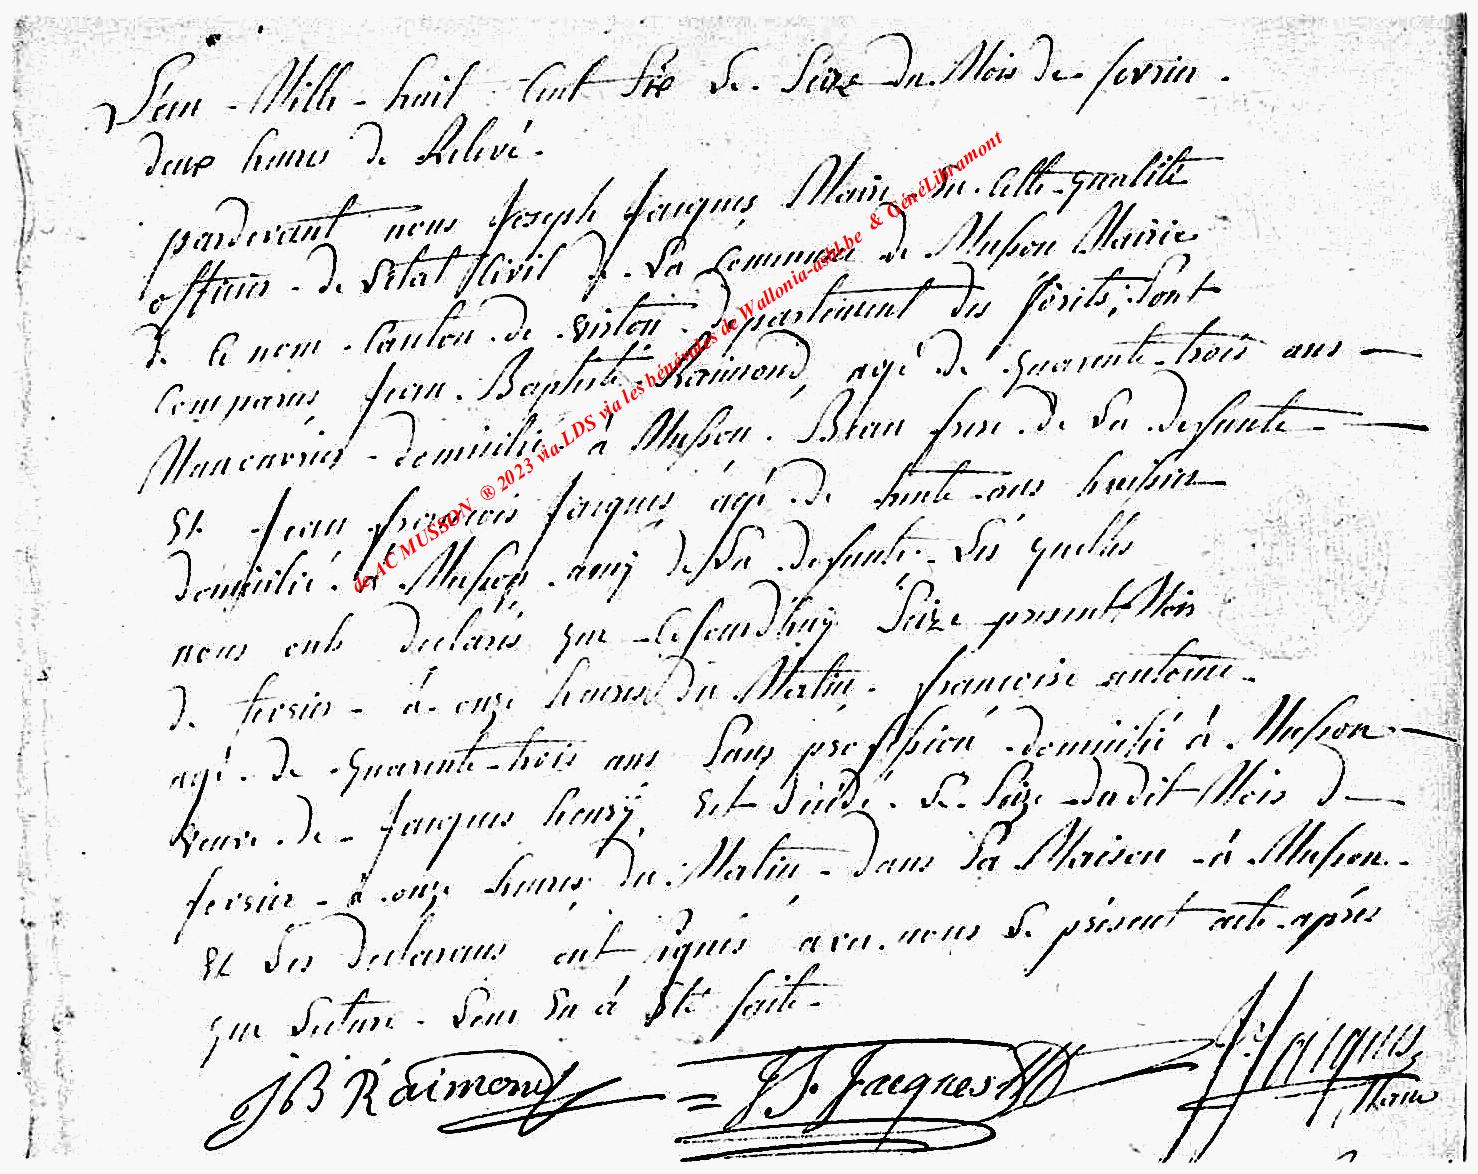 L'an Mille huit Cent Six Le Seize du Mois de fevrier
deux heures de Relevé.
pardevant nous Joseph Jacques Maire en Cette qualité
officier de L'etat Civil de La Commune de Musson Mairie
de Ce nom Canton de Virton departement des forêts, Sont
Comparus Jean Baptiste Raimond, agé de quarente trois ans
Maneuvrier domicilié à Musson Beau frere de La defunte
Et Jean françois Jacques âgé de trente ans huissier
domicilié à Musson amÿ de La defunte Les quelles
nous onts declarés que Cejourdhuÿ Seize present Mois
de fevrier à onze heures du Matin francoise antoine
agé de quarente trois ans Sans profession domicilié à Musson
veuve de Jacques henrÿ Est decidé Le Seize dudit Mois de
fevrier à onze heures du Matin dans Sa Maison à Musson
Et Les declarans ont signés avec nous Le présent acte après
que Lecture Leur En à Eté faite
JB Raimond
J F Jacques
J Jacques
Maire
de AC MUSSON ® 2023 via LDS via les bénévoles de Wallonia-asbl.be & GénéLibramont